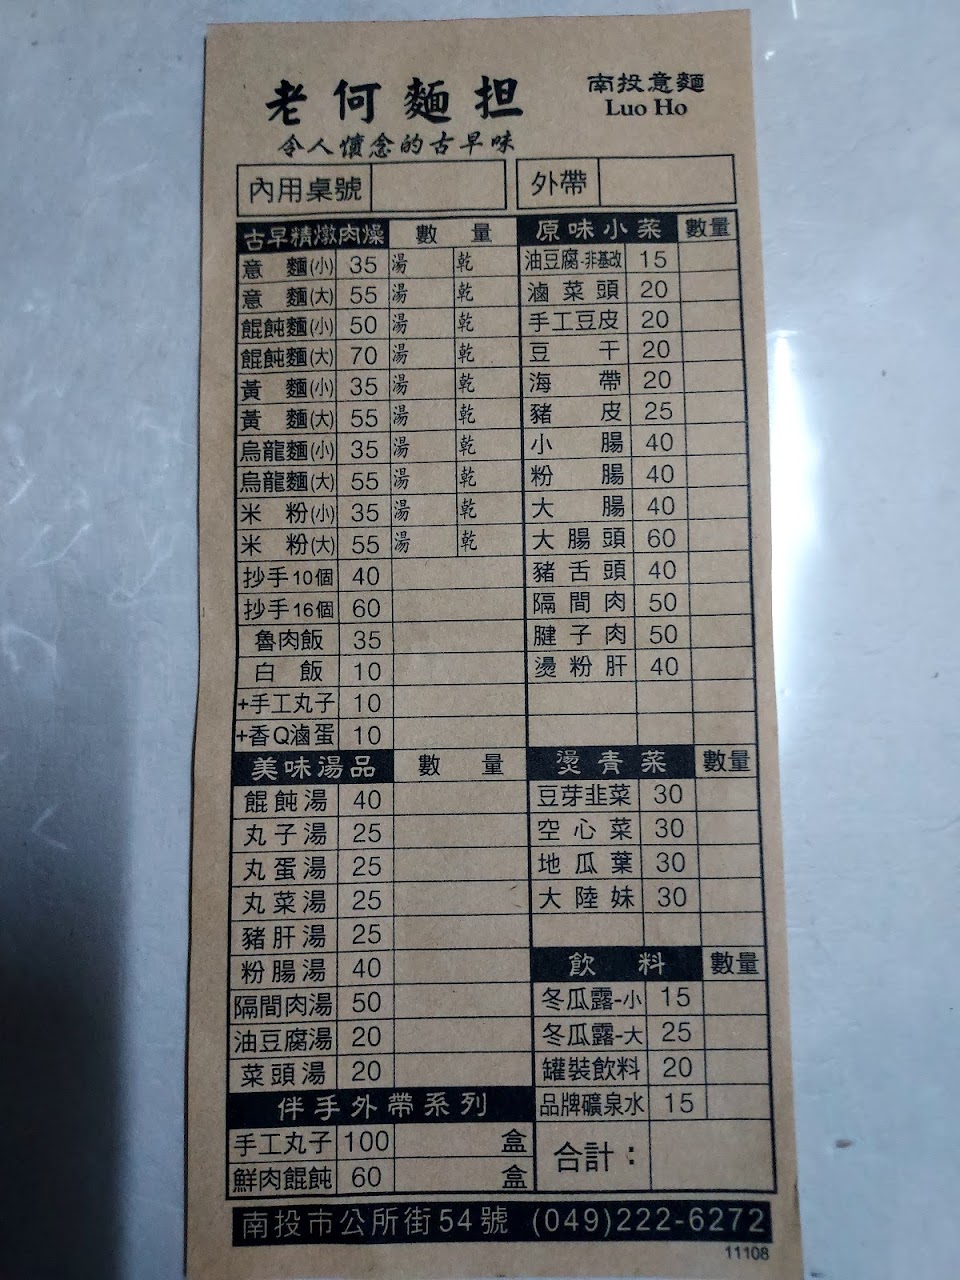 老何麵担
南投意麵
Luo Ho
令人懷念的古早味
內用桌號
外帶
古早精燉肉燥 數量
意麵(小) 35 湯 乾
意麵(大) 55 湯 乾
餛飩麵(小) 50 湯 乾
餛飩麵(大) 70 湯 乾
黃麵(小) 35 湯 乾
黃麵(大) 55 湯 乾
烏龍麵(小) 35 湯 乾
烏龍麵(大) 55 湯 乾
米粉(小) 35 湯 乾
米粉(大) 55 湯 乾
抄手10個 40
抄手16個 60
魯肉飯 35
白飯 10
+手工丸子 10
+香Q滷蛋 10
美味湯品 數量
餛飩湯 40
丸子湯 25
丸蛋湯 25
丸菜湯 25
豬肝湯 25
粉腸湯 40
隔間肉湯 50
油豆腐湯 20
菜頭湯 20
伴手外帶系列
手工丸子 100 盒
鮮肉餛飩 60 盒
原味小菜 數量
油豆腐-非基改 15
滷菜頭 20
手工豆皮 20
豆干 20
海帶 20
豬皮 25
小腸 40
粉腸 40
大腸 40
大腸頭 60
豬舌頭 40
隔間肉 50
腱子肉 50
燙粉肝 40
燙青菜 數量
豆芽韭菜 30
空心菜 30
地瓜葉 30
大陸妹 30
飲料 數量
冬瓜露-小 15
冬瓜露-大 25
罐裝飲料 20
品牌礦泉水 15
合計：
南投市公所街54號 (049)222-6272
11108